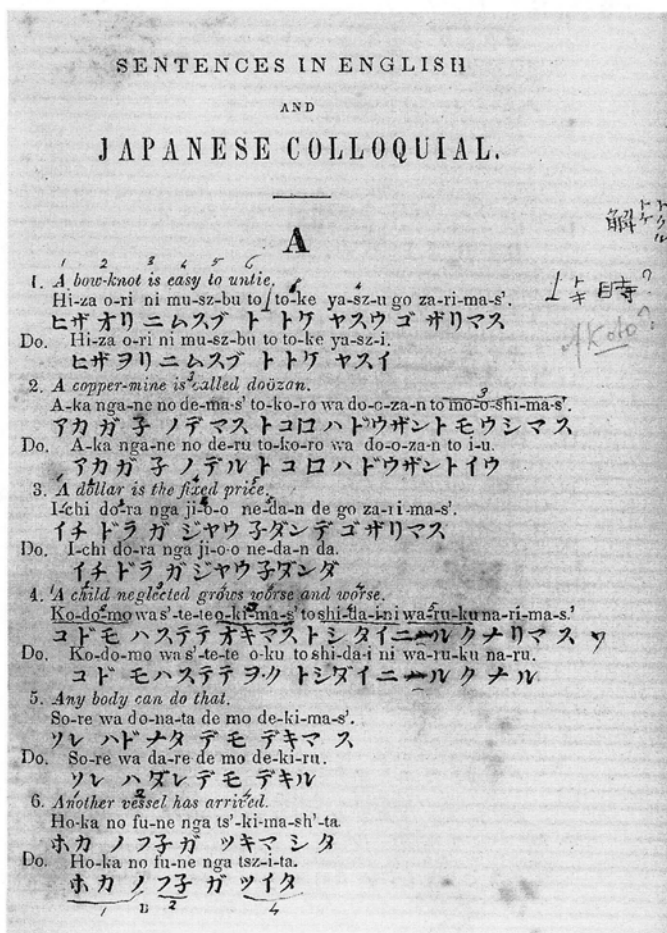 SENTENCES IN ENGLISH
AND
JAPANESE COLLOQUIAL.
A
1 2 3 4 5 6
1. A bow-knot is easy to untie.
Hi-za o-ri ni mu-sz-bu to to-ke ya-sz-u go za-ri-ma-s'.
ヒザ オリ ニ ムスブ ト トケ ヤスウ ゴ ザリマス
Do. Hi-za o-ri ni mu-sz-bu to to-ke ya-sz-i.
ヒザ ヲリ ニ ムスブ ト トケ ヤスイ
2. A copper-mine is called doözan.
A-ka nga-ne no de-ma-s' to-ko-ro wa do-o-za-n to mo-o-shi-ma-s'.
アカ ガ 子 ノ デマス トコロ ハ ドウザント モウシ マス
Do. A-ka nga-ne no de-ru to-ko-ro wa do-o-za-n to i-u.
アカ ガ 子 ノ デル トコロ ハ ドウザント イウ
3. A dollar is the fixed price.
I-chi do-ra nga ji-o-o ne-da-n de go za-ri-ma-s'.
イチ ドラ ガ ジヤウ 子ダン デ ゴ ザリマス
Do. I-chi do-ra nga ji-o-o ne-da-n da.
イチ ドラ ガ ジヤウ 子ダンダ
4. A child neglected grows worse and worse.
Ko-do-mo wa s'-te-te o-ki-ma-s' to shi-da-i ni wa-ru-ku na-ri-ma-s.'
コドモ ハ ステテ オキマス ト シタイ ニ ルク ナリマス ワ
Do. Ko-do-mo wa s'-te-te o-ku to shi-da-i ni wa-ru-ku na-ru.
コド モ ハ ステテ ヲク ト シダイ ニ ハル ク ナル
5. Any body can do that.
So-re wa do-na-ta de mo de-ki-ma-s'.
ソレ ハ ドナタ デ モ デキマ ス
Do. So-re wa da-re de mo de-ki-ru.
ソレ ハ ダレ デ モ デキル
6. Another vessel has arrived.
Ho-ka no fu-ne nga ts'-ki-ma-sh'-ta.
ホカ ノ フ子 ガ ツキマ シタ
Do. Ho-ka no fu-ne nga tsz-i-ta.
ホカ ノ フ子 ガ ツイタ
1 B 2 4
解 トケ トクル
トキ 時?
Koto?